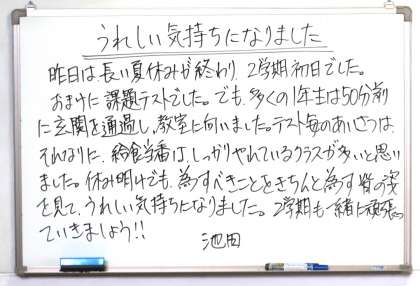 うれしい気持ちになりました
昨日は長い夏休みが終わり、2学期初日でした。
おまけに課題テストでした。でも、多くの1年生は50分前
に玄関を通過し、教室に向いました。テスト毎のあいさつは、
それなりに、給食当番は、しっかりやれているクラスが多いと思い
ました。休み明けでも、為すべきことをきちんと為す皆の姿
を見て、うれしい気持ちになりました。2学期も一緒に頑張っ
ていきましょう!!
池田